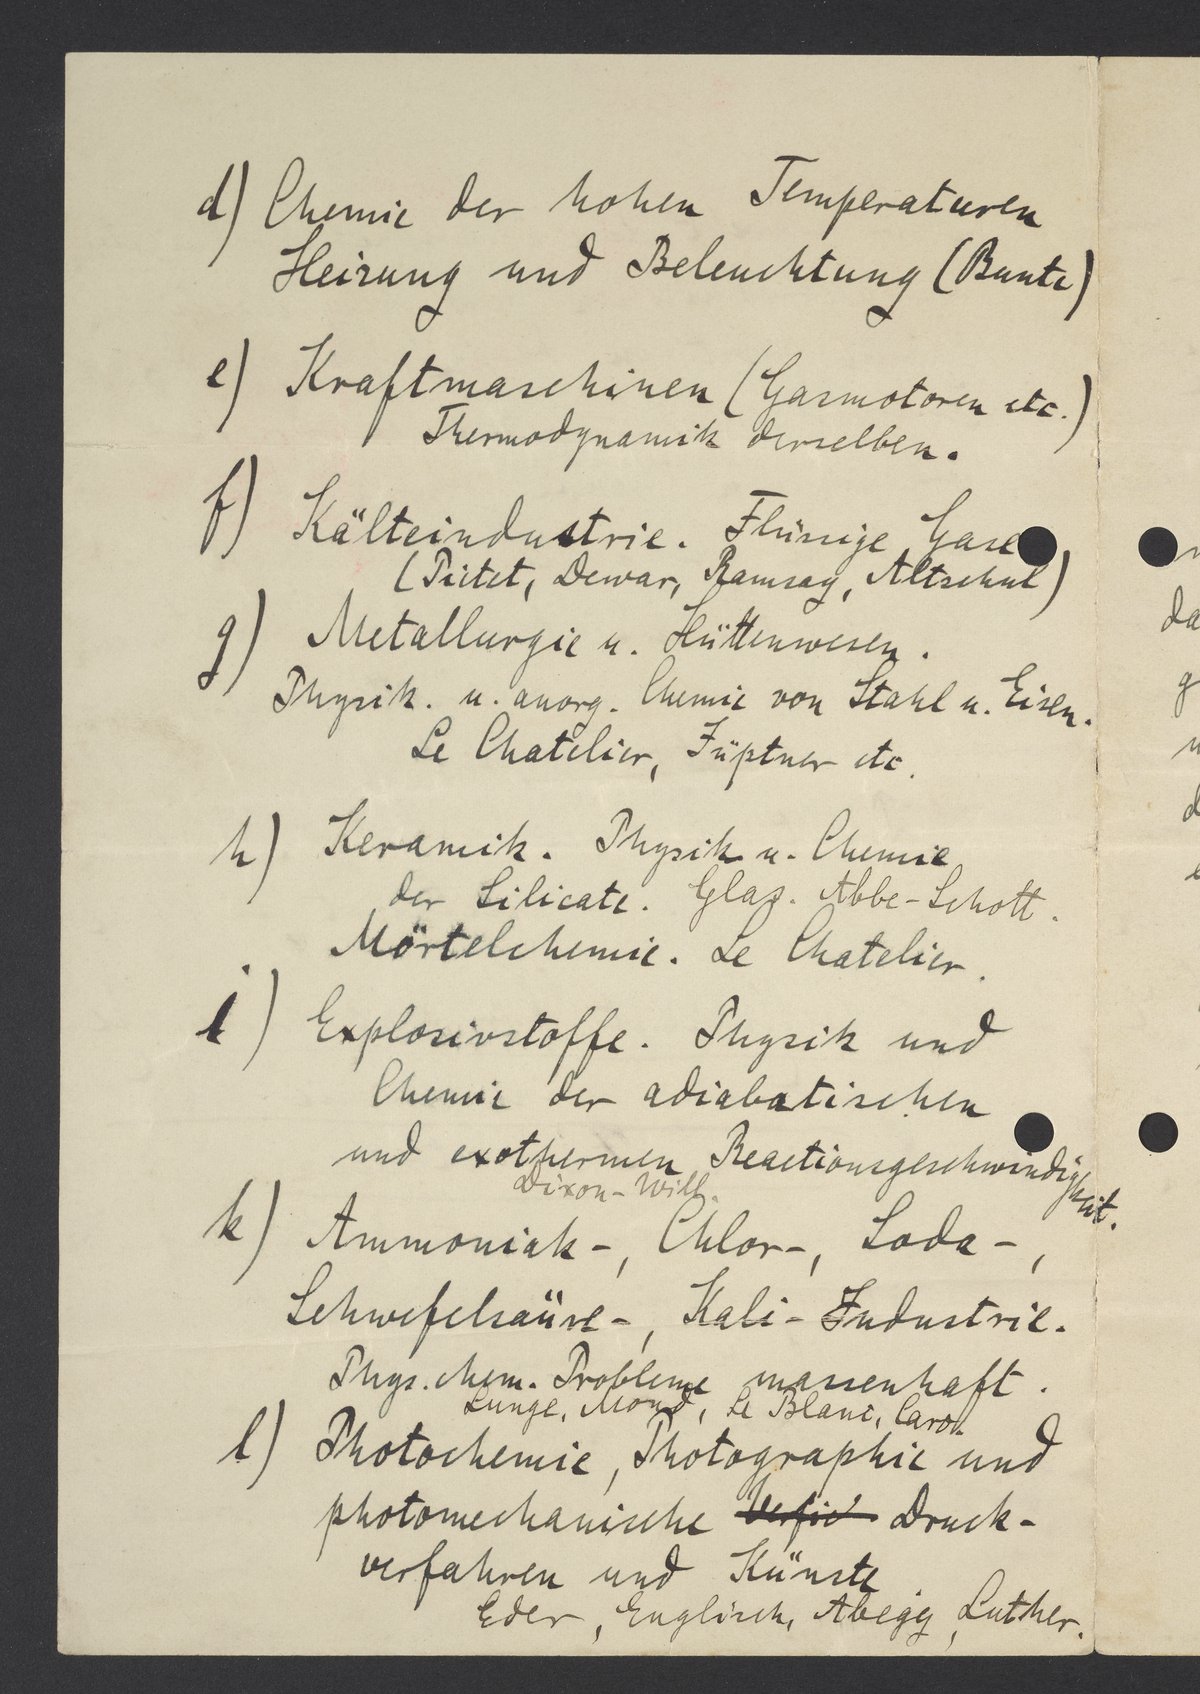 d) Chemie der hohen Temperaturen
Heizung und Beleuchtung (Bunte)
e) Kraftmaschinen (Gasmotoren etc.)
Thermodynamik derselben.
f) Kälteindustrie. Flüssige Gase
(Pictet, Dewar, Ramsay, Altschul)
g) Metallurgie u. Hüttenwesen.
Physik. u. anorg. Chemie von Stahl u. Eisen.
Le Chatelier, Jüptner etc.
h) Keramik. Physik u. Chemie
der Silicate. Glas. Abbe-Schott.
Mörtelchemie. Le Chatelier.
i) Explosivstoffe. Physik und
Chemie der adiabatischen
und exothermen Reactionsgeschwindigkeit.
Dixon - Will.
k) Ammoniak-, Chlor-, Soda-,
Schwefelsäure-, Kali-Industrie.
Phys. chem. Probleme massenhaft.
Lunge, Mond, Le Blanc, Caro.
l) Photochemie, Photographie und
photomechanische Druck-
verfahren und Künste.
Eder, Englisch, Abegg, Luther.
da
g